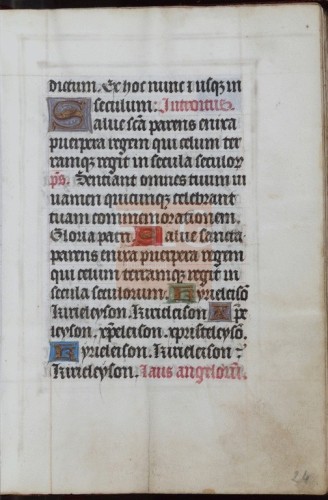 dictum. Ex hoc nunc ⁊ usqꝫ in
seculum: Introitus.
Salue scā parens enixa
puerpera regem qui celum ter
ramqꝫ regit in secula seculoꝝ
ps. Sentiant omnes tuum iu
uamen quicumqꝫ celebrant
tuam commemorationem.
Gloria patri Salue sancta
parens enixa puerpera regem
qui celum terramqꝫ regit in
secula seculorum. Kyrieleisō
Kirieleyson. Kirieleison Xp̄e
leyson. xp̄eleison. xpristeleysō.
Kyrieleison. Kirieleison ⁊
Kirieleyson. Laus angeloꝝ.
24